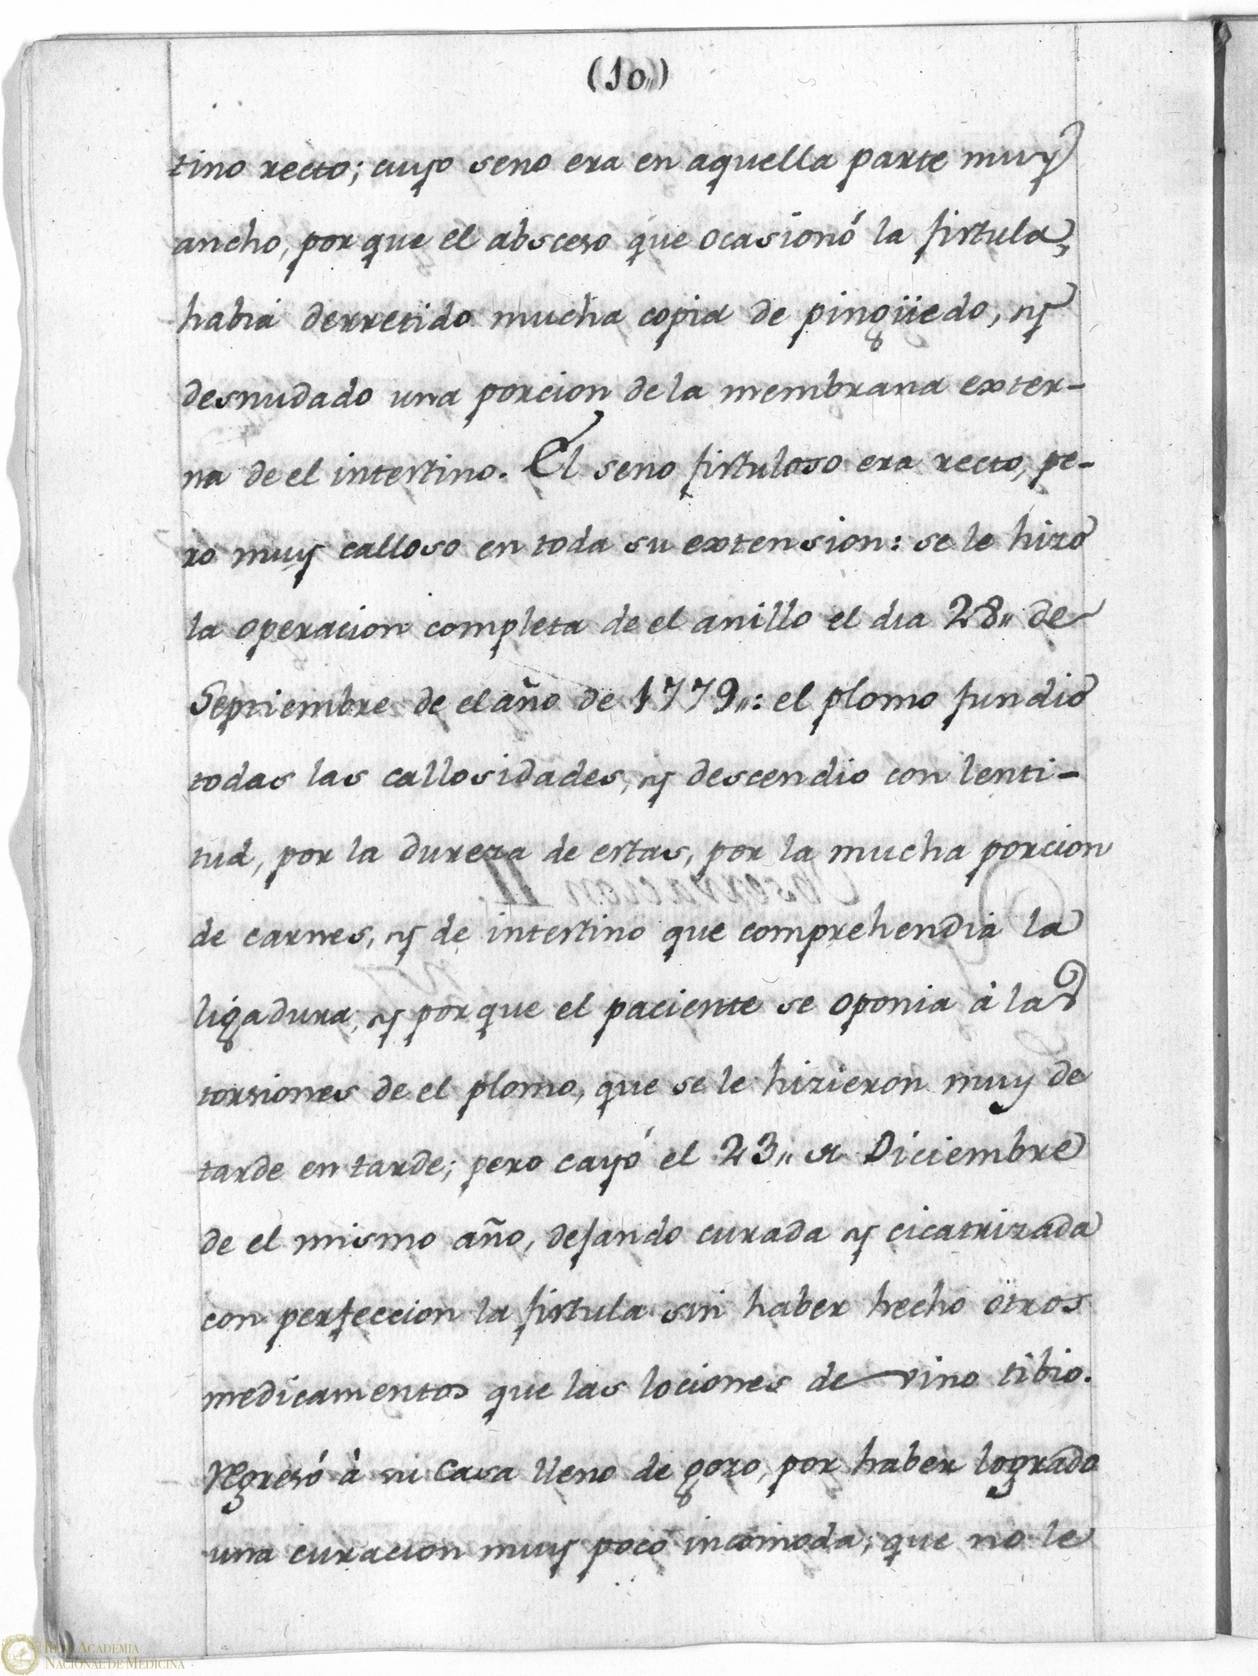 (10,,)
tino recto; cuyo seno era en aquella parte muy
ancho, por que el absceso que ocasionó la fistula,
habia derretido mucha copia de pingüedo, y
desnudado una porcion de la membrana exter-
na de el intestino. El seno fistuloso era recto, pe-
ro muy calloso en toda su extension: se le hizo
la operacion completa de el anillo el dia 28,, de
Septiembre de el año de 1779,,: el plomo fundió
todas las callosidades, y descendio con lenti-
tud, por la dureza de estas, por la mucha porcion
de carnes, y de intestino que comprehendia la
ligadura, y porque el paciente se oponia à las
torsiones de el plomo, que se le hizieron muy de
tarde en tarde; pero cayó el 23,, de Diciembre
de el mismo año, dejando curada y cicatrizada
con perfeccion la fistula sin haber hecho otros
medicamentos que las lociones de vino tibio.
Regresó à su casa lleno de gozo, por haber logrado
una curacion muy poco incomoda, que no le
REAL ACADEMIA
NACIONAL DE MEDICINA